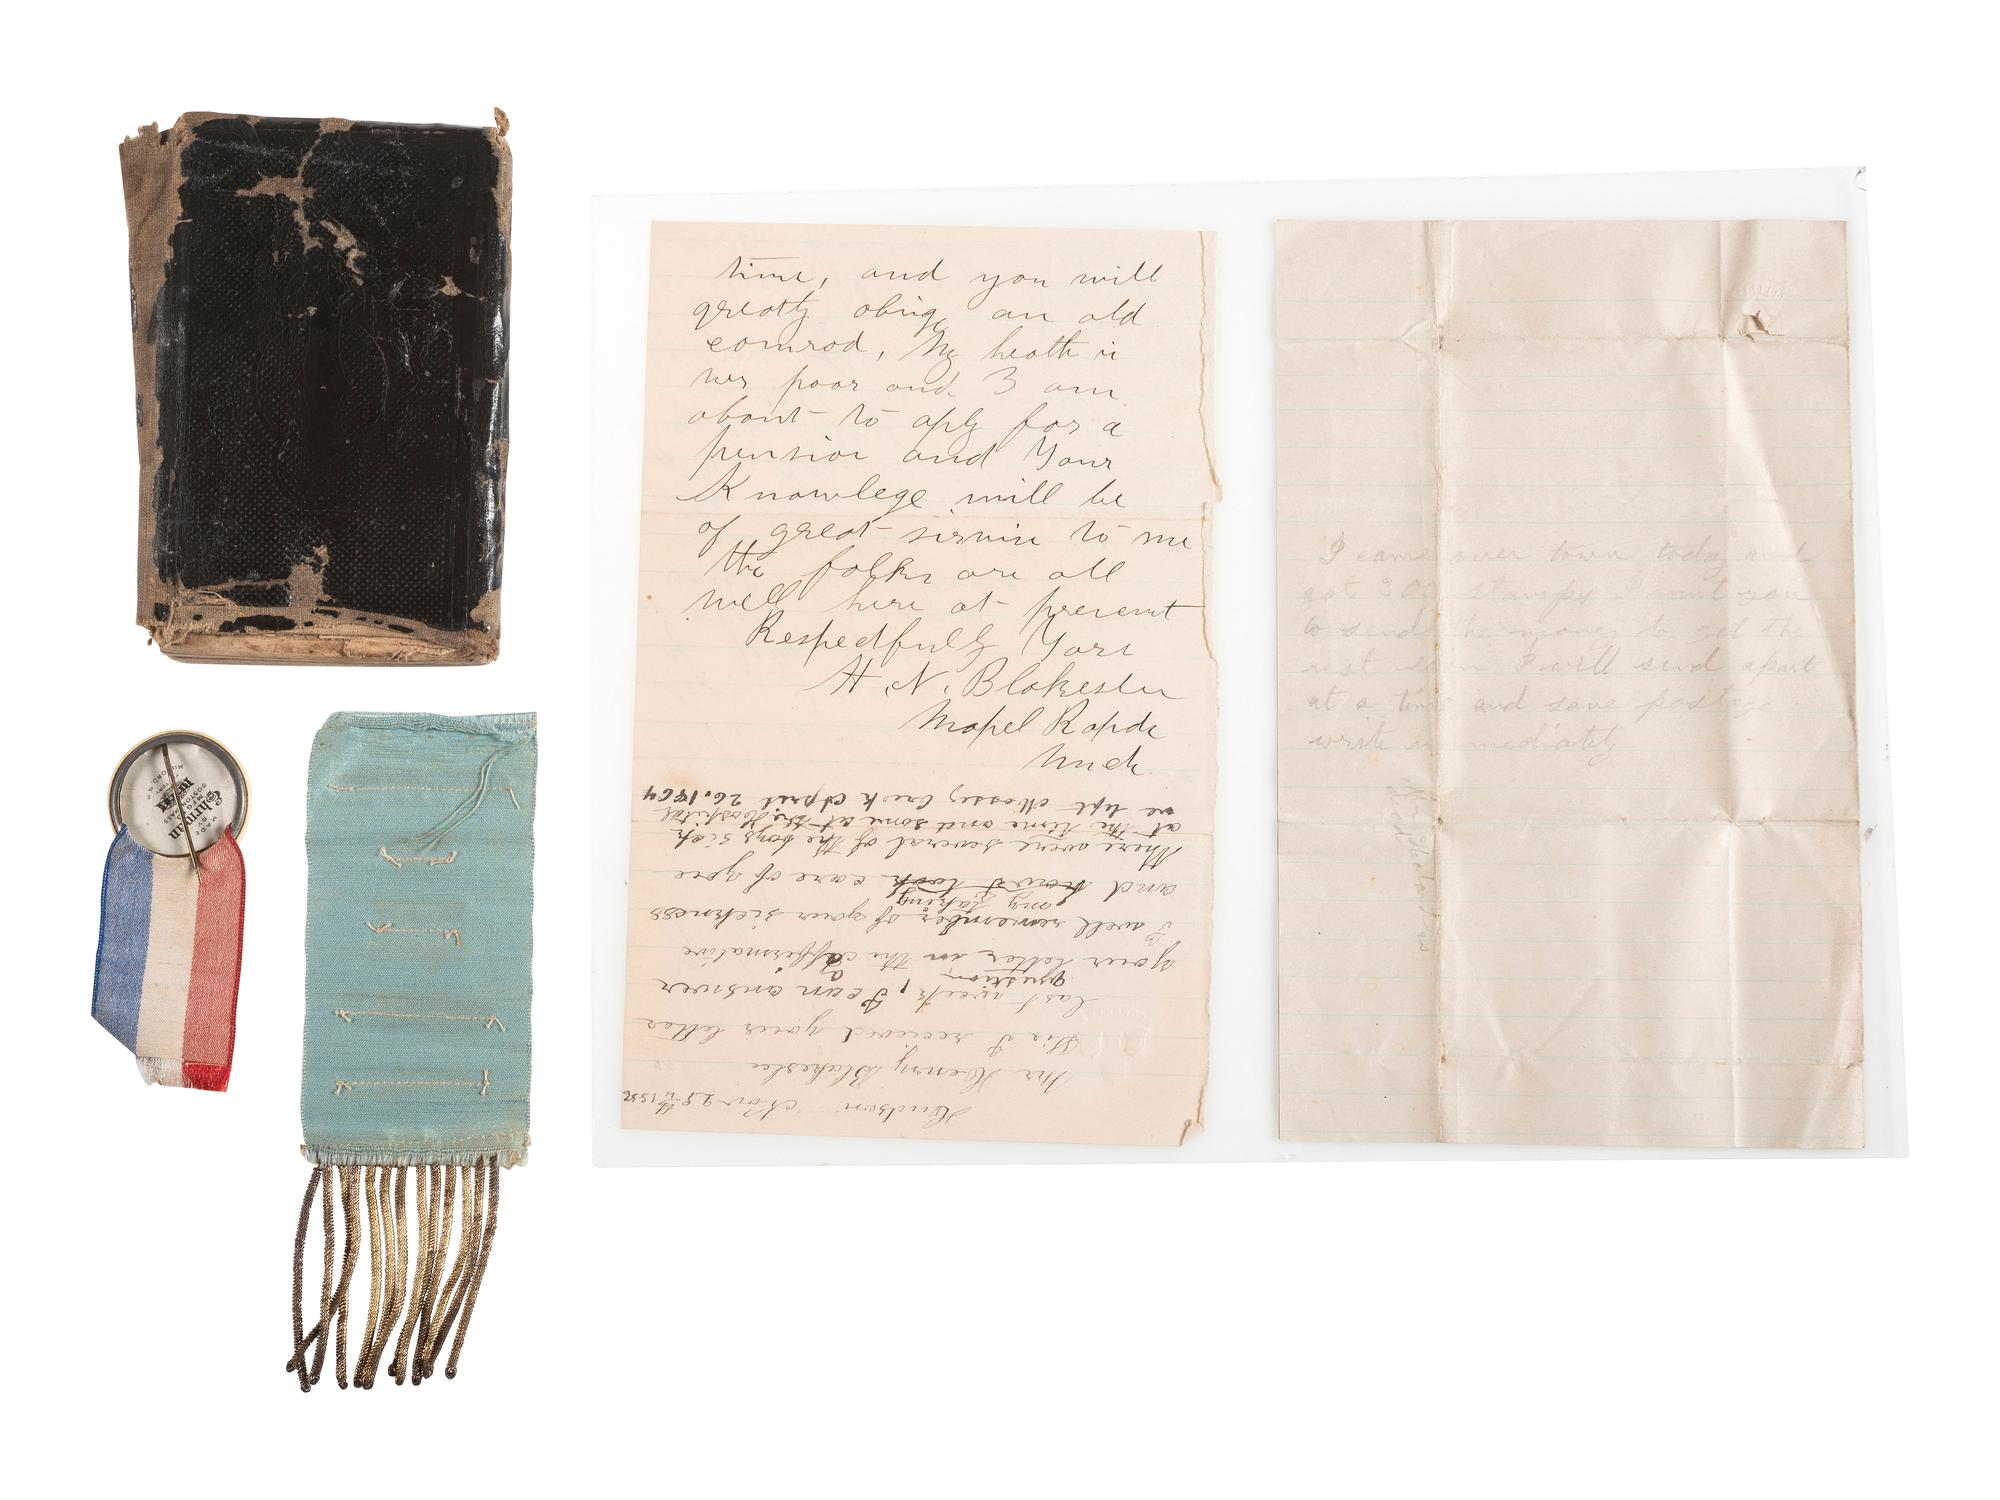 time, and you will
greatly oblige an old
comrod, My heath is
very poor and I am
about to aply for a
pension and Your
Knowlege will be
of great sirvice to me
the folks are all
well here at present
Respedfully Yors
H. N. Blakeslee
Mapel Rapids
Mich
Hudson Nov 28th 1886
Mr Henry Blakeslee
Sir I recieved your letter
last week, I can answer
question
your letter in the affirmative
I well remember of your sickness
my taking
and care of you
there were several of the boys sick
at the time and some at the Hospital
we left Mossey Creek April 26. 1864
I came over town today and
got 300 stamps I want you
to send the money to get the
rest soon I will send apart
at a time and save postage
write immediately
MADE
BY
Ehrman
MFG.
BOSTON
MILFORD, N.H.